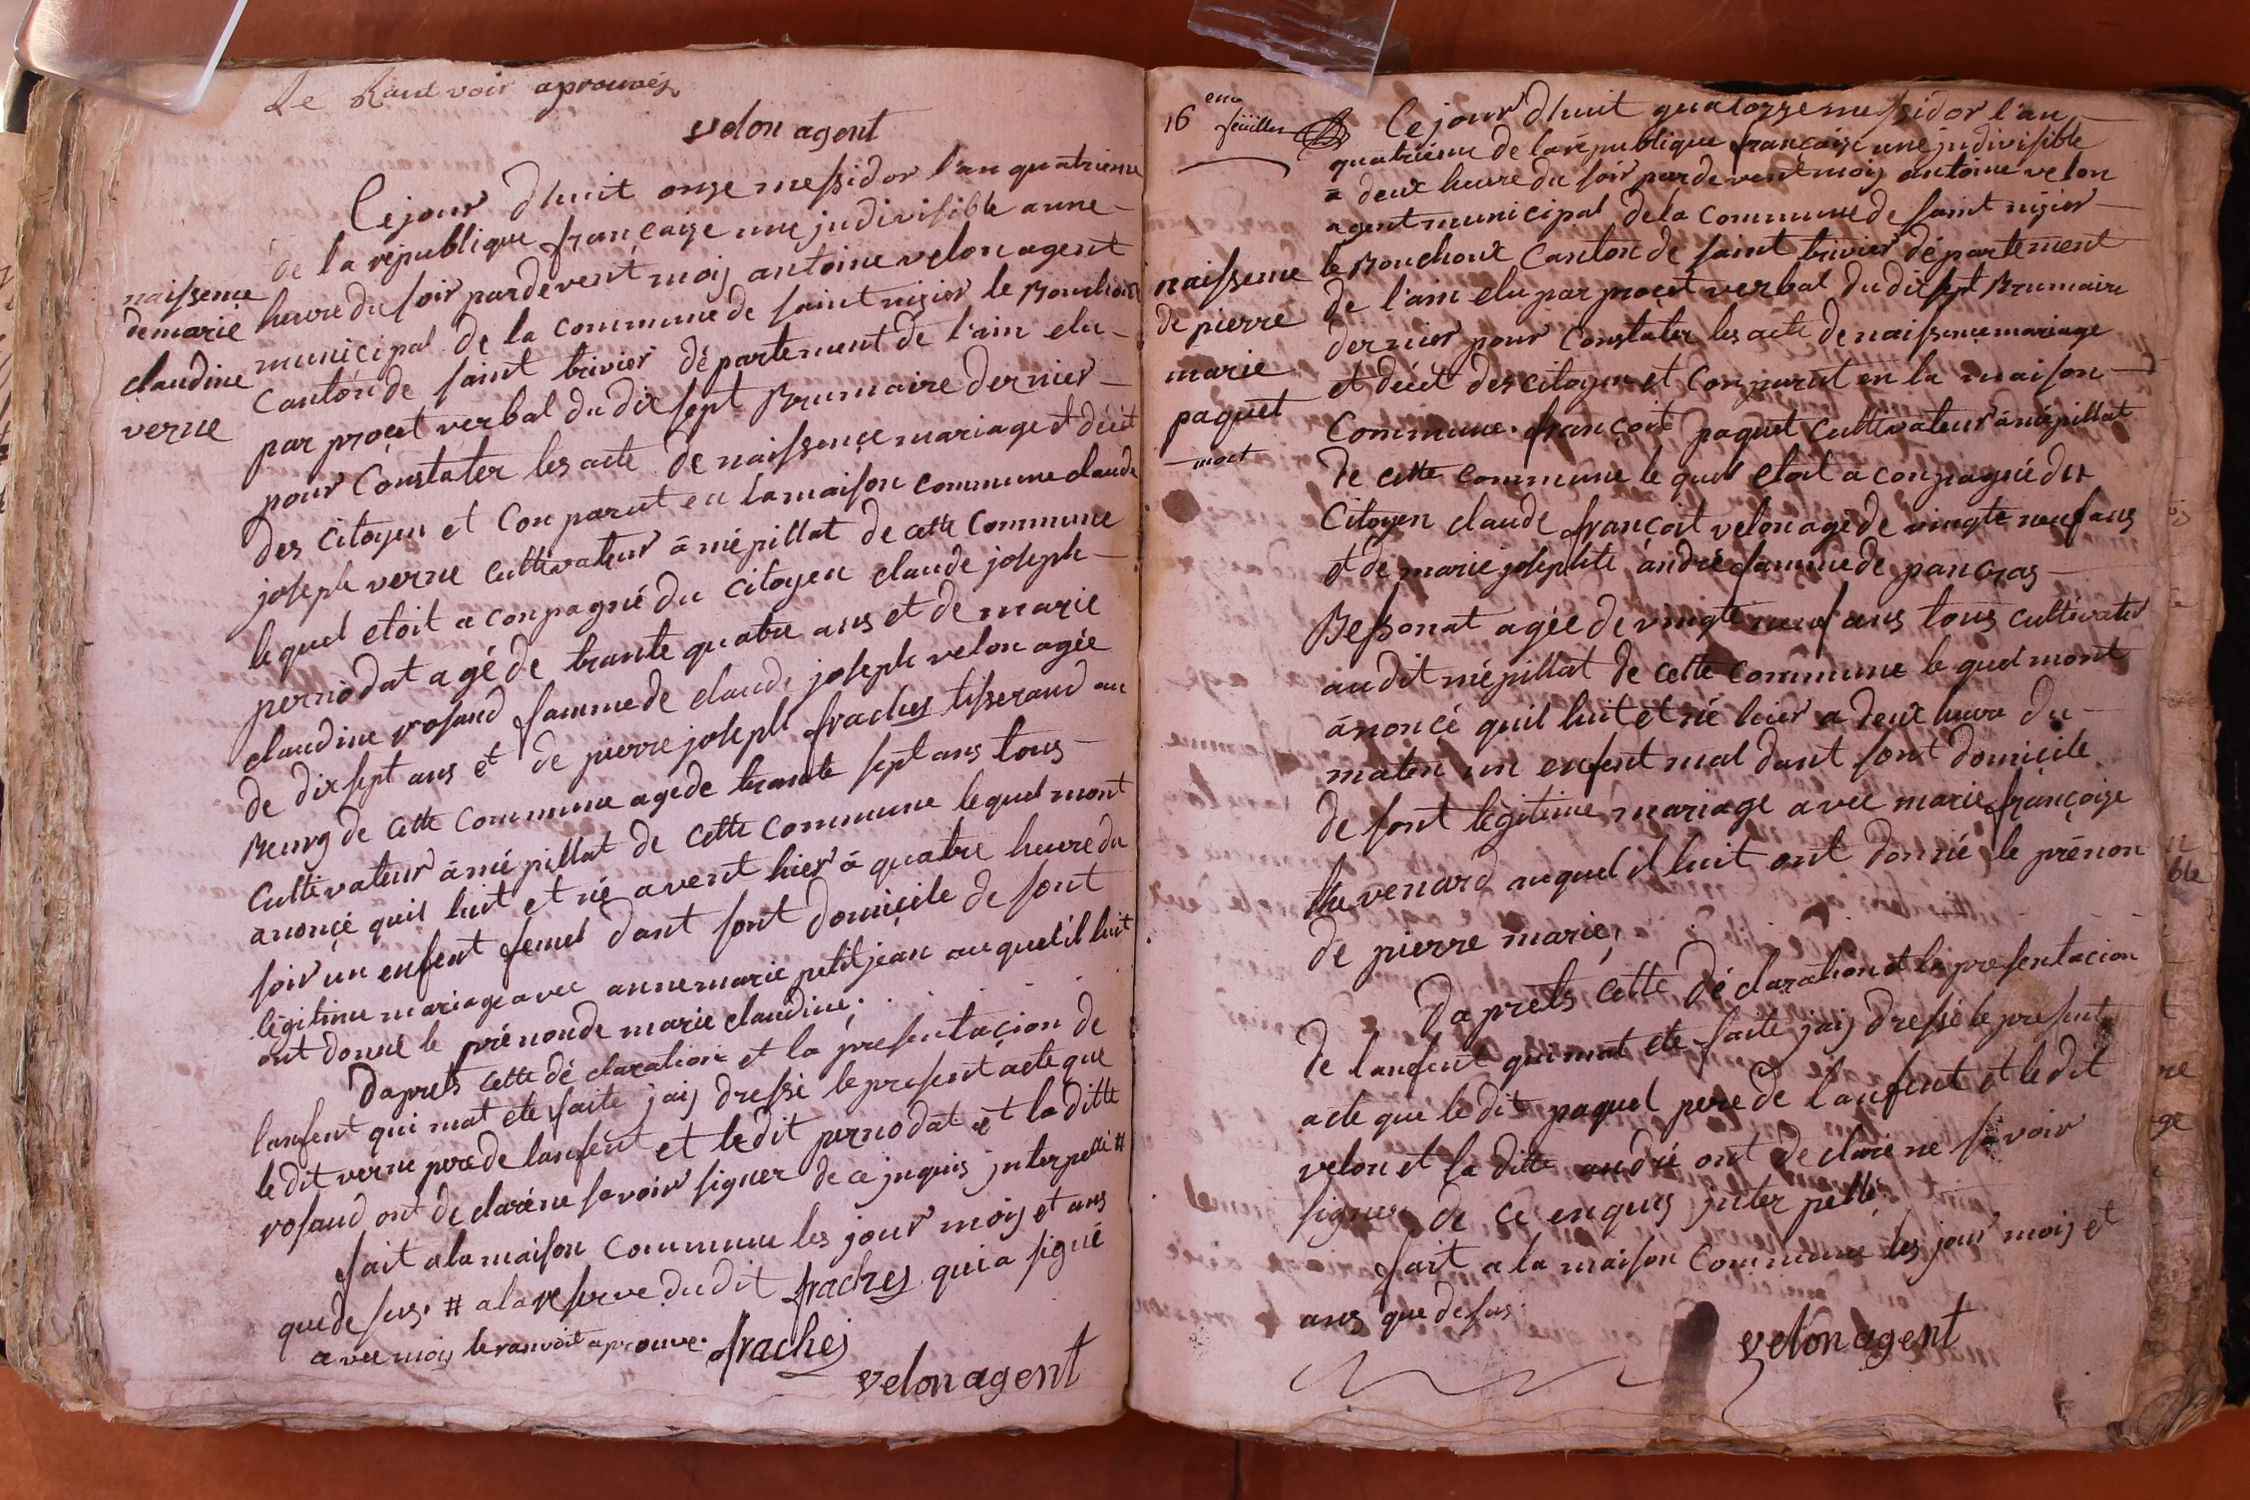 Le Ranvoir aprouvéz
velon agent
naissence
demarie
claudine
verne
Cejour d'huit onze messidor l'an quatrieme
de la republique françaize une jndivisible a une
heure du soir pardevent moij antoine velon agent
municipal de la commune de saint nizier le Bouchoux
Canton de saint trivier département de l'ain elu
par procet verbal du dix sept Brumaire dernier
pour Constater les acte de naissençe mariage et décet
des citoyen et Conparut en la maison commune claude
joseph verne cultivateur à mépillat de cette Commune
le quel etoit aconpagné du citoyen claude joseph
perniodat agé de trante quatre ans et de marie
claudine rosand famme de claude joseph velon agée
de dixsept ans et de pierre joseph frachej tisserand au
Bourg de cette commune agede trante sept ans tous
Cultivateur à mé pillat de cette commune lequel mont
anonçé quil luit et né avent hier à quatre heure du
soir un enfent femel dont sont domicile de sont
légitime mariage avec annemarie petitjean auquel il luit
ont donné le prénon de marie claudine.
Daprets cette dé claration et la presentaçion de
lanfent qui mat ete faite jaij dressé le present acte que
le dit verne pere de lanfent et le dit perniodat et la ditte
rosand ont de claréne savoir signer de ce jnquis jnterpellé #
fait a la maison Commune les jour moij et ans
que de sus. # a la reserve du dit frachej qui a signé
avec moij le ranvoit aprouve. frachej
velon agent
16 eme feüillet
naissense
de pierre
marie
paquet
mort
Cejour d'huit quatorze messidor l'an
quatriéme de la république françaize une jndivisible
a deux heure du soir pardevent moij antoine velon
agent municipal de la Commune de saint nizier
le Bouchoux Canton de saint trivier département
de l'ain elu par procet verbal du dix sept Brumaire
dernier pour Constater les acte de naissençe mariage
et décet des citoyen et Conparut en la maison
Commune. françoit paquet cultivateur à mépillat
de cette commune le quel etoit aconpagné des
Citoyen claude françoit velon agé de vingte neuf ans
et de marie josephte andré famme de pancras
Bessonat agée de vingte neuf ans tous cultivater
au dit mépillat de cette commune le quel mont
ànoncé quil luit et né hier a deux heure du
matin un enfent mal dant sont domicile
de sont légitime mariage avec marie françoize
thevenard auquel il luit ont donné le prénon
de pierre marie,
Daprets cette dé claration et la presentacion
de lanfent qui mat ete faite jaij dressé le present
acte que le dit paquet pere de lanfent et le dit
velon et la ditte andré ont de claré ne savoir
signer de ce enquis jnter pellé
fait a la maison Commune les jour moij et
ans que desus.
velon agent